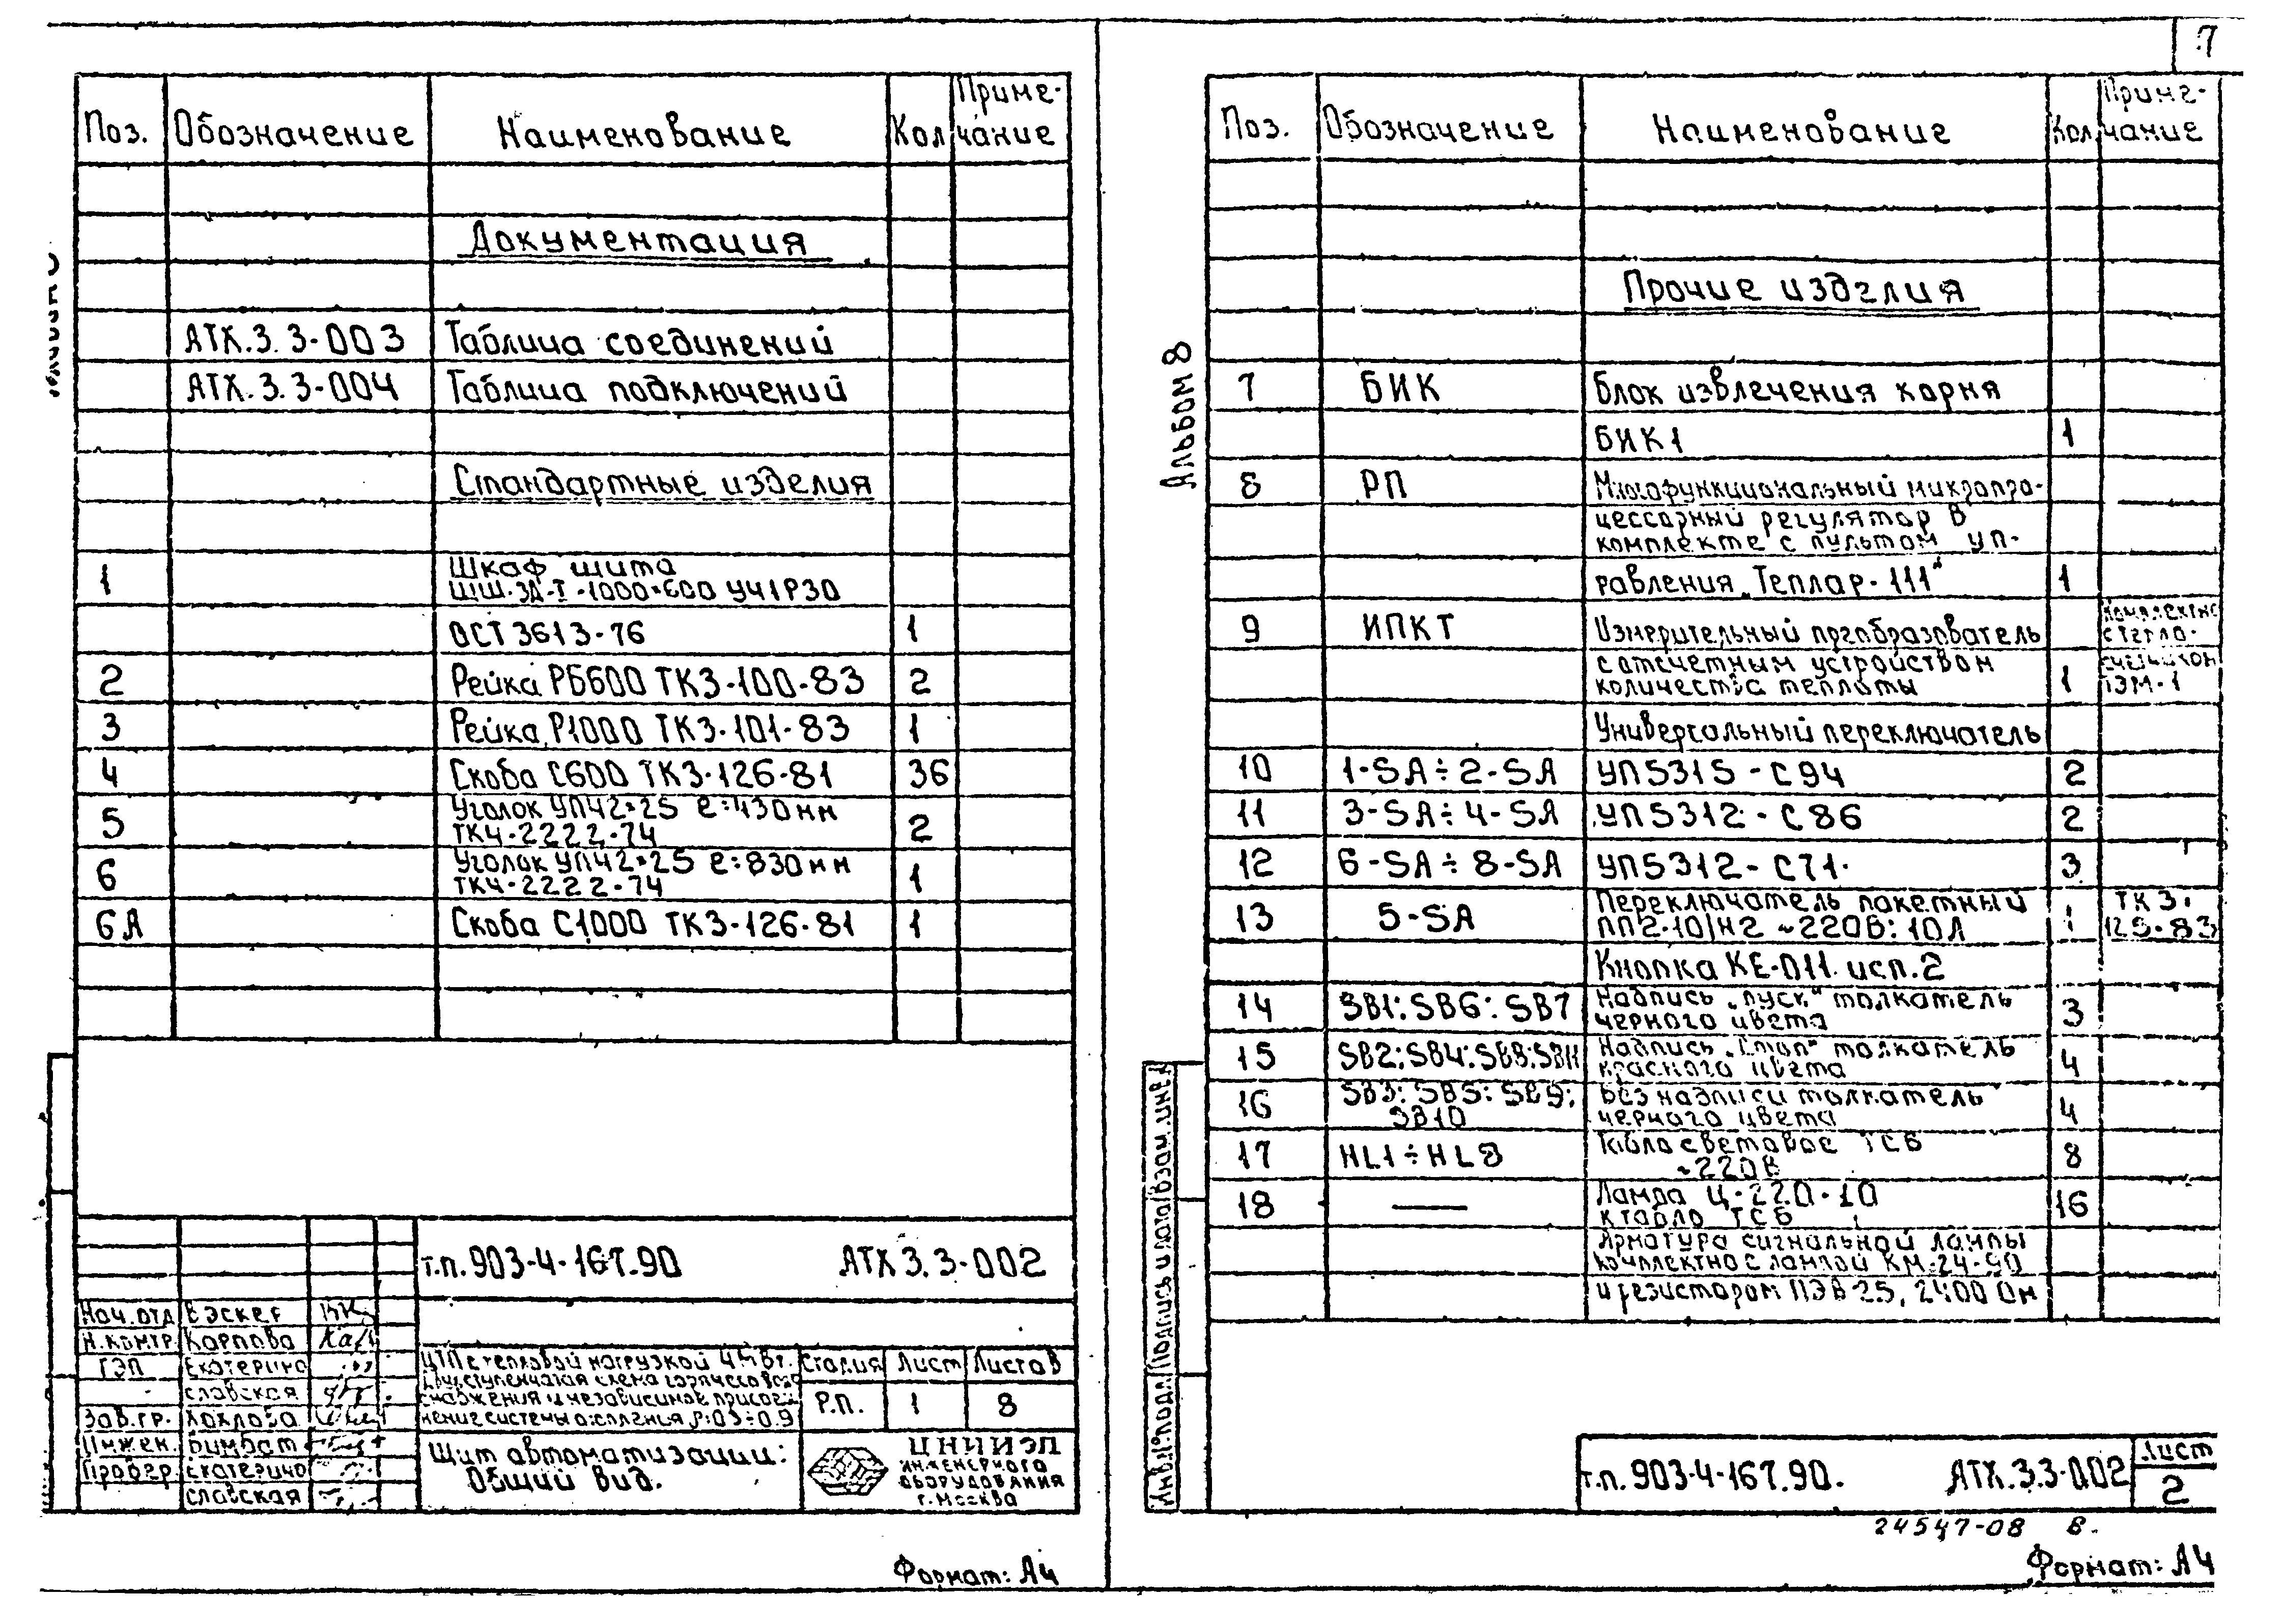 7
Поз. Обозначение Наименование Кол Приме-
чание
Документация
АТХ.3.3-003 Таблица соединений
АТХ.3.3-004 Таблица подключений
Стандартные изделия
1 Шкаф щита
ЩШ-ЗД-I-1000×600 УЧ1Р30
ОСТ 3613-76 1
2 Рейка РБ600 ТК3-100-83 2
3 Рейка Р1000 ТК3-101-83 1
4 Скоба С600 ТК3-126-81 36
5 Уголок УП42×25 ℓ=430мм
ТК4-2222-74 2
6 Уголок УП42×25 ℓ=830мм
ТК4-2222-74 1
6А Скоба С1000 ТК3-126-81 1
т.п. 903-4-167.90 АТХ 3.3-002
Нач.отд
Н.контр. Карпова
ГЭП Екатерино
славская
Зав.гр. Хохлова
Инжен.
Провер. Екатерино
славская
ЦТП с тепловой нагрузкой 4МВт.
Двухступенчатая схема горячего водо-
снабжения и независимое присоеди-
нение системы отопления
Стадия Лист Листов
Р.П. 1 8
Щит автоматизации:
Общий вид.
ЦНИИЭП
ИНЖЕНЕРНОГО
ОБОРУДОВАНИЯ
г. Москва
Формат: А4
Альбом 8
Поз. Обозначение Наименование Кол. Приме-
чание
Прочие изделия
7 БИК Блок извлечения корня
БИК1 1
8 РП Многофункциональный микропро-
цессорный регулятор в
комплекте с пультом уп-
равления „Теплар-111" 1
9 ИПКТ Измерительный преобразователь комплектно
с отсчетным устройством с тепло-
количества теплоты 1 счетчиком
ТЭМ-1
Универсальный переключатель
10 1-SA÷2-SA УП5315-С94 2
11 3-SA÷4-SA УП5312-С86 2
12 6-SA÷8-SA УП5312-С71. 3
13 5-SA Переключатель пакетный 1 ТК3-
ПП2-10/Н2 ~220В; 10А 125-83
Кнопка КЕ-011 исп.2
14 SB1; SB6; SB7 Надпись „пуск" толкатель
черного цвета 3
15 SB2; SB4; SB8; SB11 Надпись „Стоп" толкатель
красного цвета 4
16 SB3; SB5; SB9; Без надписи толкатель
SB10 черного цвета 4
17 HL1÷HL8 Табло световое ТСБ
~220В 8
18 — Лампа Ц-220-10
к табло ТСБ 16
Арматура сигнальной лампы
комплектно с лампой КМ-24-90
и резистором ПЭВ 25, 2400 Ом
Инв.№ подл Подпись и дата Взам.инв.№
т.п. 903-4-167.90. АТХ.3.3-002 Лист
2
24547-08 8.
Формат: А4